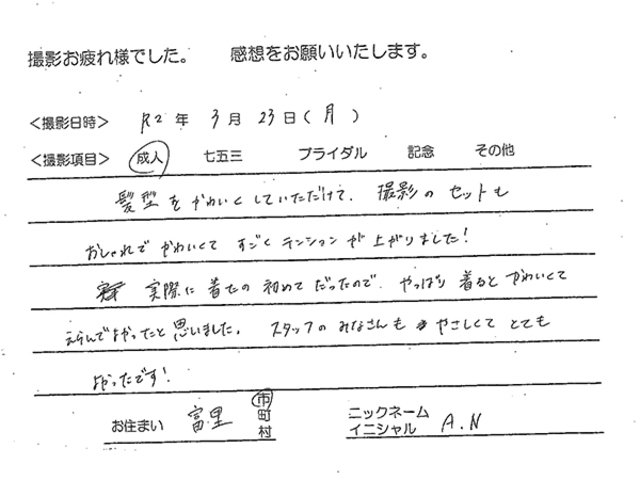 撮影お疲れ様でした。　感想をお願いいたします。
＜撮影日時＞ R2 年 3 月 23 日 ( 月 )
＜撮影項目＞ 成人 七五三 ブライダル 記念 その他
髪型をかわいくしていただけて、撮影のセットも
おしゃれでかわいくてすごくテンションが上がりました！
実際に着たの初めてだったので、やっぱり着るとかわいくて
えらんでよかったと思いました。スタッフのみなさんもやさしくてとても
よかったです！
お住まい 富里 市 町 村 ニックネーム イニシャル A.N